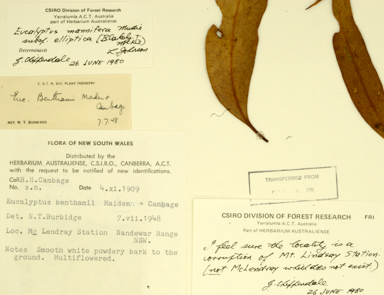 CSIRO Division of Forest Research
Yarralumla A.C.T. Australia
part of Herbarium Australiense
Eucalyptus mannifera Mudie
subsp. elliptica (Blakely &
McKie) L. Johnson
Determinavit
G. Chippendale 26 JUNE 1980
C.S.I.R. DIV. PLANT INDUSTRY
Euc. Benthami Maiden &
Cambage
DET. N. T. BURBIDGE 7.7.48
FLORA OF NEW SOUTH WALES
Distributed by the
HERBARIUM AUSTRALIENSE, C.S.I.R.O., CANBERRA, A.C.T.
with the request to be notified of new identifications.
Coll. R.H. Cambage
No. s.n. Date 4.xi.1909
Eucalyptus benthamii Maiden & Cambage
Det. N.T. Burbidge 7.vii.1948
Loc. Mc Lendray Station Nandewar Range
NSW.
Notes Smooth white powdery bark to the
ground. Multiflowered.
TRANSFERRED FROM
CSIRO DIVISION OF FOREST RESEARCH FRI
Yarralumla A.C.T. Australia
I feel sure the locality is a
corruption of Mt. Lindsay Station.
(not McLendray which does not exist)
G. Chippendale
26 JUNE 1980